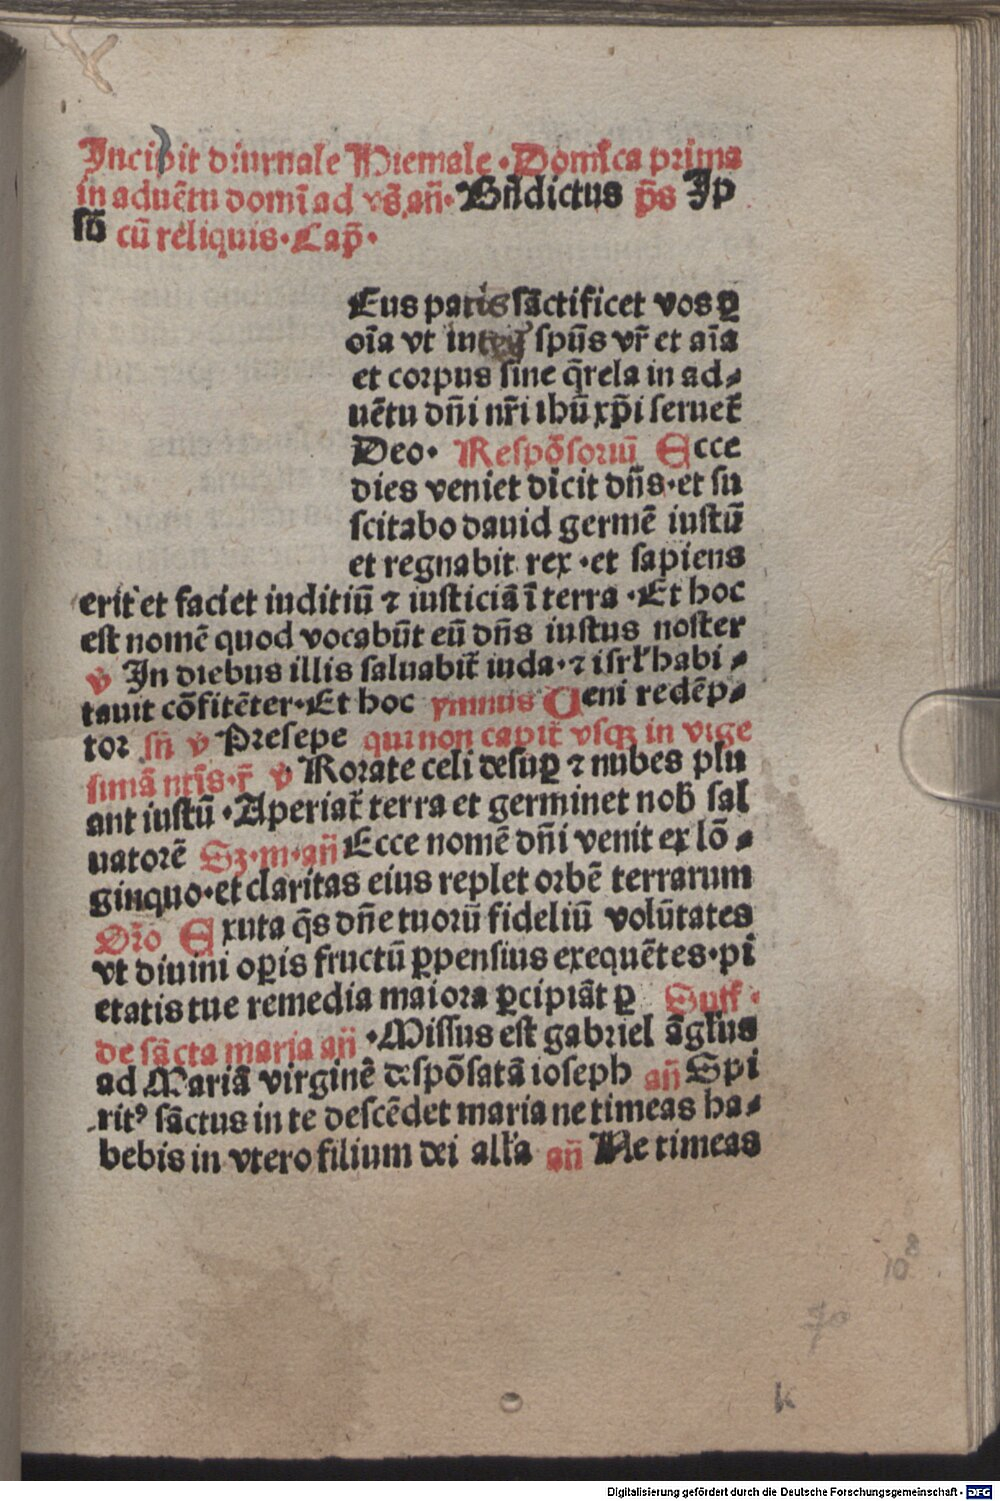 Incipit diurnale Hiemale. Domīca prima
in aduētu domī ad vs̄.an̄. Bn̄dictus p̄s Ip
sū cū reliquis. Cap̄.
Eus pacis sāctificet vos ꝑ
oīa vt integꝰ spūs vr̄ et aīa
et corpus sine q̄rela in ad-
uētu dn̄i nr̄i ihū xp̄i seruet᷑
Deo. Respōsoriū Ecce
dies veniet dicit dn̄s.et su
scitabo dauid germē iustū
et regnabit rex.et sapiens
erit et faciet iuditiū ⁊ iusticiā ī terra.Et hoc
est nomē quod vocabūt eū dn̄s iustus noster
℣ In diebus illis saluabit᷑ iuda.⁊ isrl̄ habi-
tauit cōfitēter.Et hoc ymnus Ueni redēp-
tor sn̄ ℣ Presepe qui non capit᷑ vsqꝫ in vige
simā ntīs.r̄ ℣ Rorate celi desuꝑ ⁊ nubes plu
ant iustū.Aperiat᷑ terra et germinet nob̄ sal
uatorē Sz.m.an̄ Ecce nomē dn̄i venit ex lō-
ginquo.et claritas eius replet orbē terrarum
Or̄o Exuta q̄s dn̄e tuorū fideliū volūtates
vt diuini oꝑis fructū ꝓpensius exequētes.pi
etatis tue remedia maiora ꝑcipiāt ꝑ Suff.
de sācta maria an̄.Missus est gabriel āglus
ad Mariā virginē despōsatā ioseph an̄ Spi
ritꝰ sāctus in te descēdet maria ne timeas ha-
bebis in vtero filium dei all'a an̄ Ne timeas
10 8
70
k
Digitalisierung gefördert durch die Deutsche Forschungsgemeinschaft - DFG